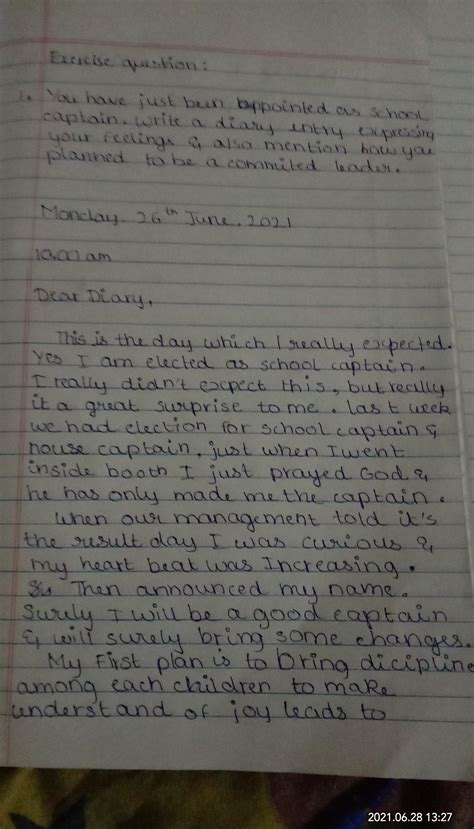 Exercise question:
1. You have just been appointed as school
captain. Write a diary entry expressing
your feelings & also mention how you
planned to be a commited leader.
Monday, 26th June, 2021
10.00 am
Dear Diary,
This is the day which I really expected.
Yes I am elected as school captain.
I really didn't expect this, but really
it a great surprise to me. last week
we had election for school captain &
house captain, just when I went
inside booth I just prayed God &
he has only made me the captain.
when our management told it's
the result day I was curious &
my heart beat was Increasing.
Then announced my name.
Surely I will be a good captain
& will surely bring some changes.
My First plan is to bring dicipline
among each children to make
understand of joy leads to
2021.06.28 13:27